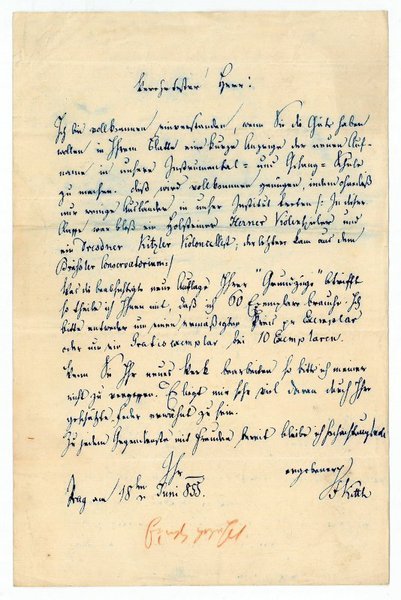 Verehrtester Herr!
Ich bin vollkommen einverstanden, wenn Sie die Güte haben
wollen in Ihrem Blatte eine kurze Anzeige der neuen Auf-
nahme in unsere Instrumental- und Gesang-Schule
zu machen. Dieß wird vollkommen genügen, indem ohnedieß
nur wenige Ausländer in unser Institut treten /: In dieser
Classe war bloß ein Holsteiner Herner Violinspieler und
ein Dresdner Kitzler Violoncellist; der letztere kam aus dem
Brüßler Conservatorium:/
Was die beabsichtigte neue Auflage Ihrer "Grundzüge" betrifft
so theile ich Ihnen mit, daß ich 60 Exemplare brauche. Ich
bitte entweder um einen ermäßigten Preis pr Exemplar
oder um ein Gratisexemplar bei 10 Exemplaren.
Wenn Sie Ihr neues Werk bearbeiten so bitte ich meiner
nicht zu vergessen. Es liegt mir sehr viel daran durch Ihre
geschätzte Feder erwähnt zu sein.
Zu jedem Gegendienste mit Freuden bereit bleibe ich hochachtungsvoll
Ihr
ergebenster
Prag am 18ten Juni 855.
J F Kittl